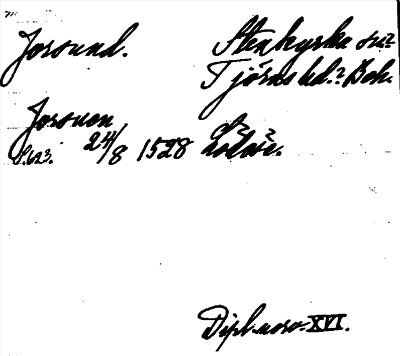 Jorsund. Stenkyrka sn?
Tjörns hd.? Boh.
Jorsuon
S. 623. 24/8 1528 avskr.
Dipl. norv. XVI.